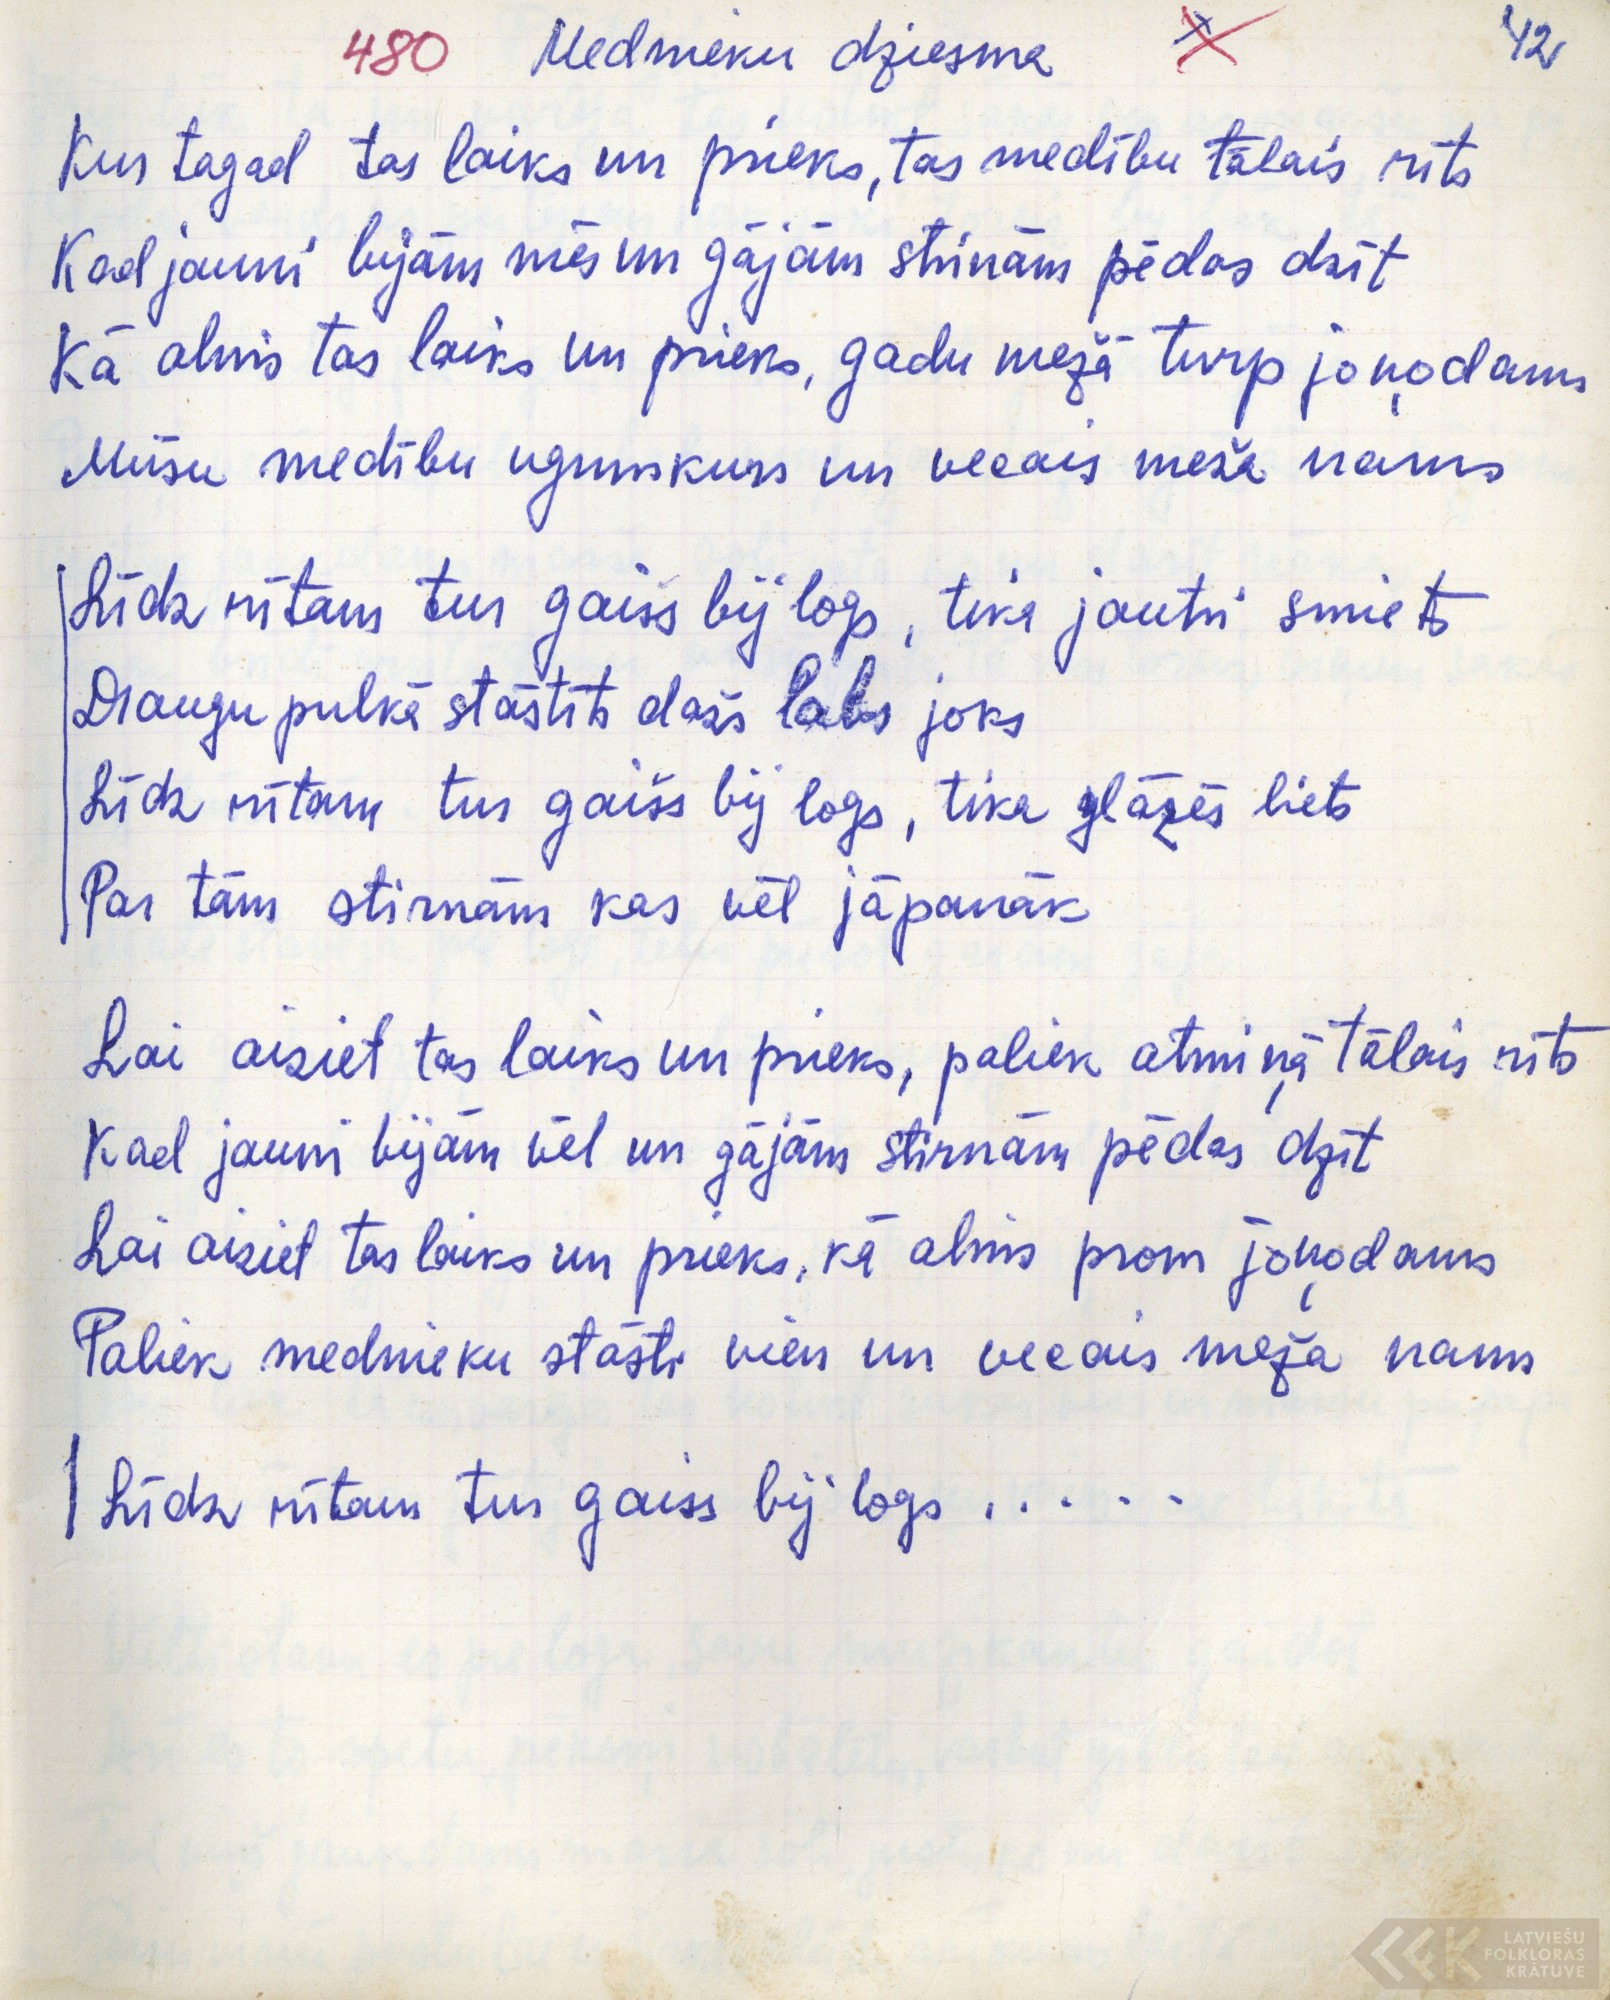 480 Mednieku dziesma 42
Kur tagad tas laiks un prieks, tas medību tālais rīts
Kad jauni bijām mēs un gājām stirnām pēdas dzīt
Kā alnis tas laiks un prieks, gadu mežā turp joņodams
Mūsu medību ugunskurs un vecais meža nams
Līdz rītam tur gaišs bij logs, tika jautri smiets
Draugu pulkā stāstīts dažs labs joks
Līdz rītam tur gaišs bij logs, tika glāzēs liets
Par tām stirnām kas vēl jāpanāk
Lai aiziet tas laiks un prieks, paliek atmiņā tālais rīts
Kad jauni bijām vēl un gājām stirnām pēdas dzīt
Lai aiziet tas laiks un prieks, kā alnis prom joņodams
Paliek mednieku stāsti vien un vecais meža nams
Līdz rītam tur gaiss bij logs . . . . .
LATVIEŠU
FOLKLORAS
KRĀTUVE